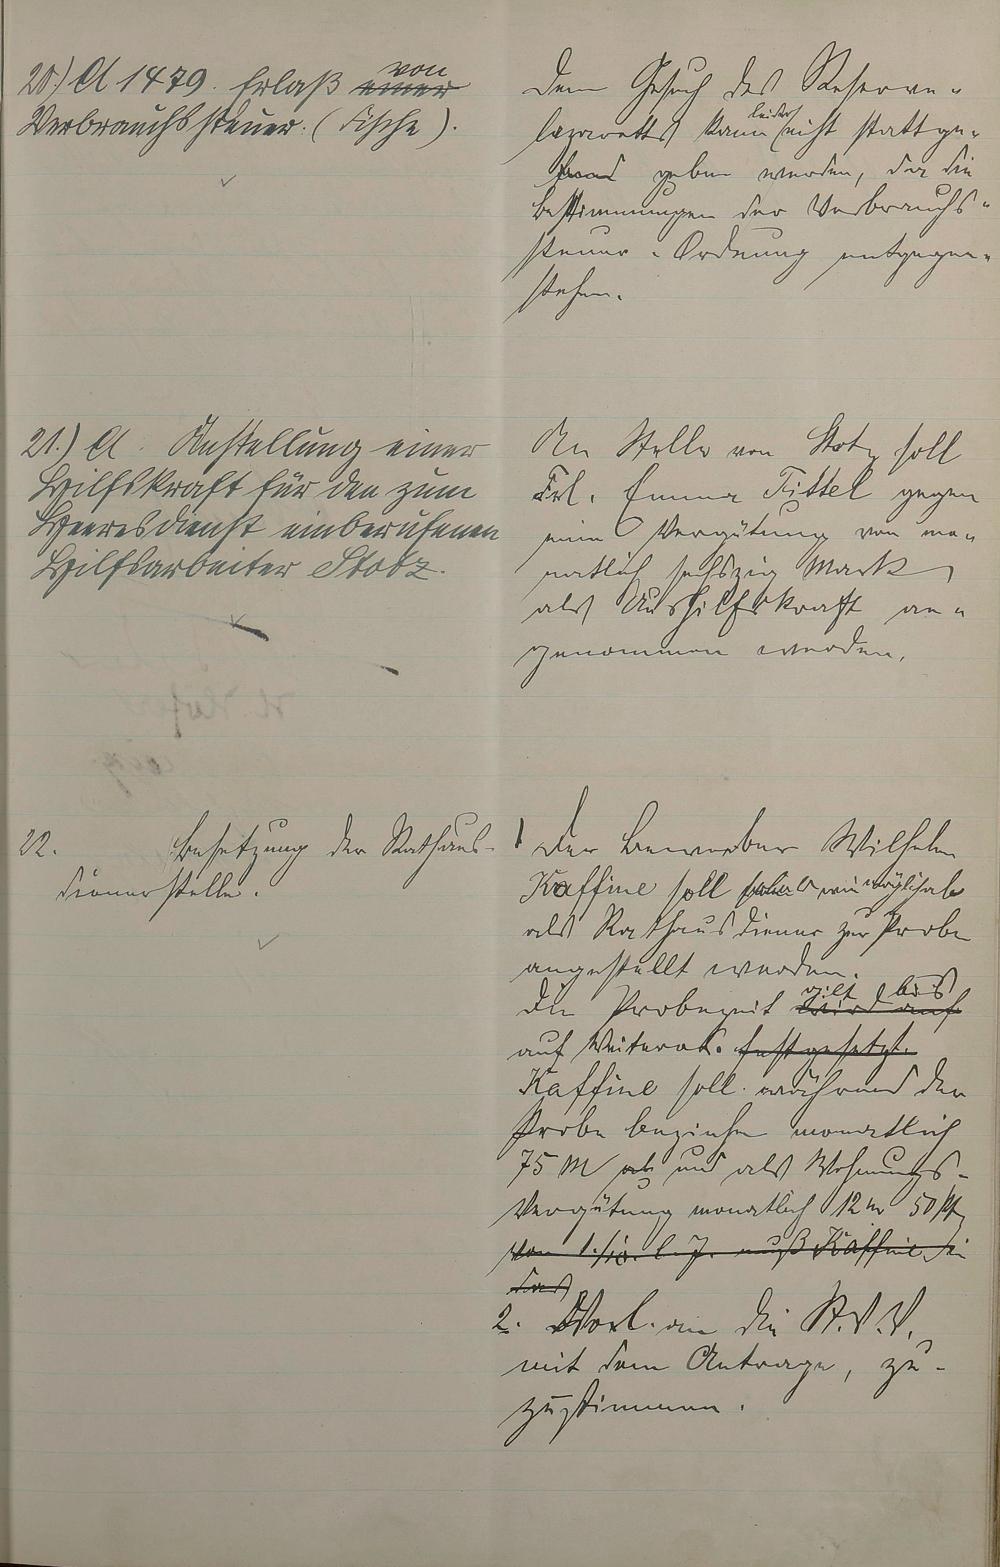 20.) A 1479. Erlaß einer von
Verbrauchssteuer. (Fische).
Dem Gesuch des Reserve-
lazaretts kann leider nicht stattge-
geben werden, da die
Bestimmungen der Verbrauchs-
steuer-Ordnung entgegen-
stehen.
21.) A. Anstellung einer
Hilfskraft für den zum
Heeresdienst einberufenen
Hilfsarbeiter Stotz.
An Stelle von Stotz soll
Frl. Emma Tittel gegen
eine Vergütung von mo-
natlich sechszig Mark
als Aushilfskraft an-
genommen werden.
22. Besetzung der Rathaus-
dienerstelle.
1 Der Bewerber Wilhelm
Kaffine soll sobald wie möglich
als Rathausdiener zur Probe
angestellt werden.
Die Probezeit wird auf gilt bis
auf Weiteres. festgesetzt.
Kaffine soll während der
Probe beziehen monatlich
75 M und als Wohnungs-
vergütung monatlich 12 M 50 Pf
Vom 1./10. l. J. muß Kaffine in
das
2. Vorl. an die St.V.V.
mit dem Antrage, zu-
zustimmen.